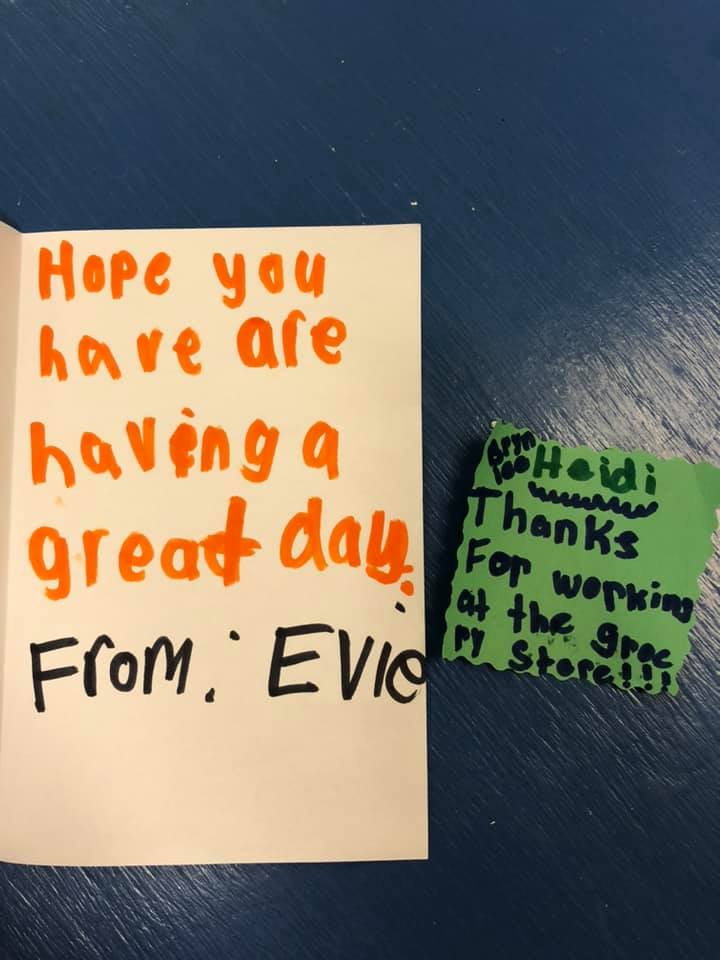 Hope you
have are
having a
great day.
From: Evie
Heidi
Thanks
For working
at the groc
ry Store!!!